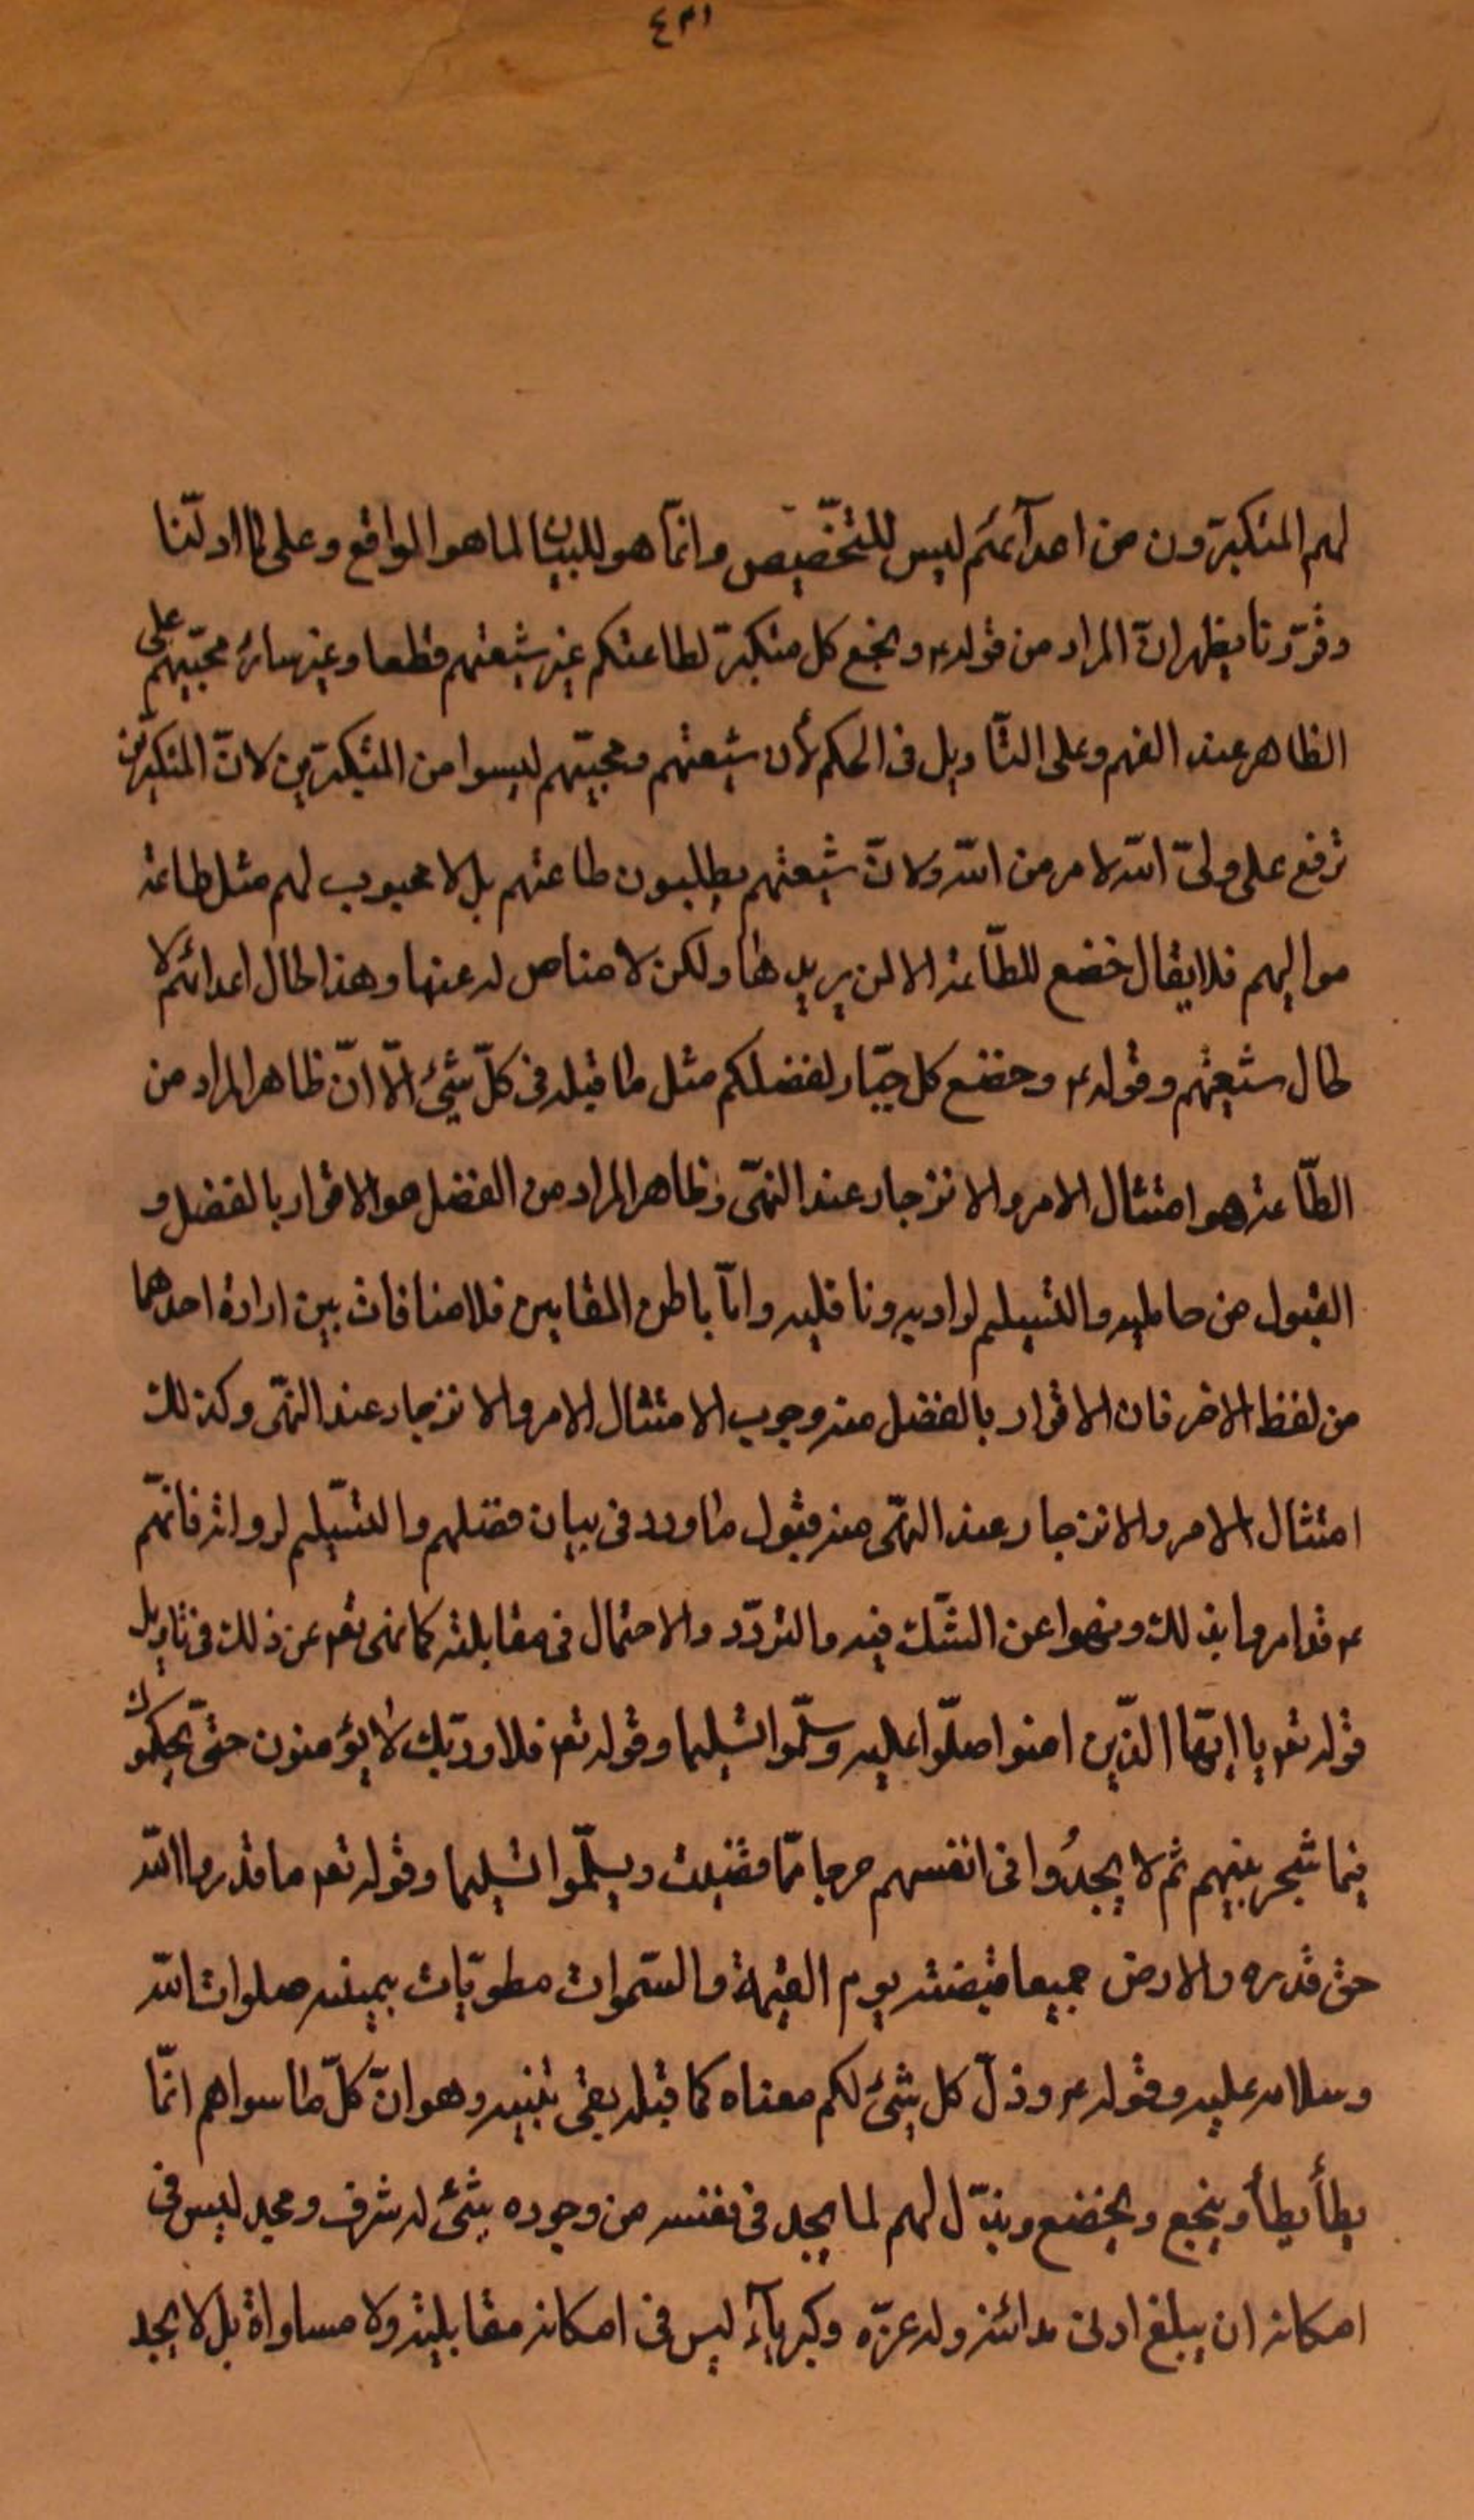 ٤٣١
لهم المتكبرّون من اعدآئهم ليس للتخّصيص وانمّا هو للبيان لما هو الواقع وعلى ما اولنّا
وقرّرنا يظهر انّ المراد من قوله ع وبخع كل متكبرّ لطاعتكم غير شيعتهم قطعا وغير سائر محبّيهم على
الظاهر عند الفهم وعلى التأويل فى الحكم لأن شيعتهم ومحبيّهم ليسوا من المتكبرّين لانّ المتكبرّين
ترفع على ولىّ الله لامر من الله ولانّ شيعتهم يطلبون طاعتهم بل لا محبوب لهم مثل طاعة
مواليهم فلا يقال خضع للطّاعة الا لمن يريدها ولكن لا مناص له عنها وهذا حال اعدائهم لا
حال شيعتهم وقوله ع وخضع كل جبّار لفضلكم مثل ما قبله فى كلّ شيئ الّا انّ ظاهر المراد من
الطّاعة هو امتثال الامر والانزجار عند النهّى وظاهر المراد من الفضل هو الاقرار بالفضل و
القبول من حامليه والتسيلم لراويه وناقليه وامّا باطن المقامين فلا منافات بين ارادة احدهما
من لفظ الاخر فان الاقرار بالفضل منه وجوب الامتثال الامر والانزجار عند النهّى وكذلك
امتثال الامر والانزجار عند النهّى منه قبول ما ورد فى بيان فضلهم والتسّيلم لرواته فانهّم
ع قد امروا بذلك ونهوا عن الشّك فيه والتردّد والاحتمال فى مقابلته كما نهى تع عن ذلك فى تاويل
قوله تع يا ايّها الذّين امنوا صلّوا عليه وسلّموا تسليما وقوله تع فلا وربّك لا يؤمنون حتىّ يحكموك
فيما شجر بينهم ثم لا يجدُوا فى انفسهم حرجا ممّا قضيت ويسلّموا تسليما وقوله تع ما قدروا الله
حق قدره والارض جميعا قبضته يوم القيمة والسّموات مطويّات بيمينه صلوات الله
وسلامه عليه وقوله ع وذلّ كل شيئ لكم معناه كما قبله بقى تنبيه وهو انّ كلّ ما سواهم انمّا
يطأ يطأ ويبخع ويخضع ويذّل لهم لما يجد فى نفسه من وجوده بشئ له شرف ومجد ليس فى
امكانه ان يبلغ ادنى مدائنه وله عزّه وكبريآء ليس فى امكانه مقابليته ولا مساواة بل لا يجد